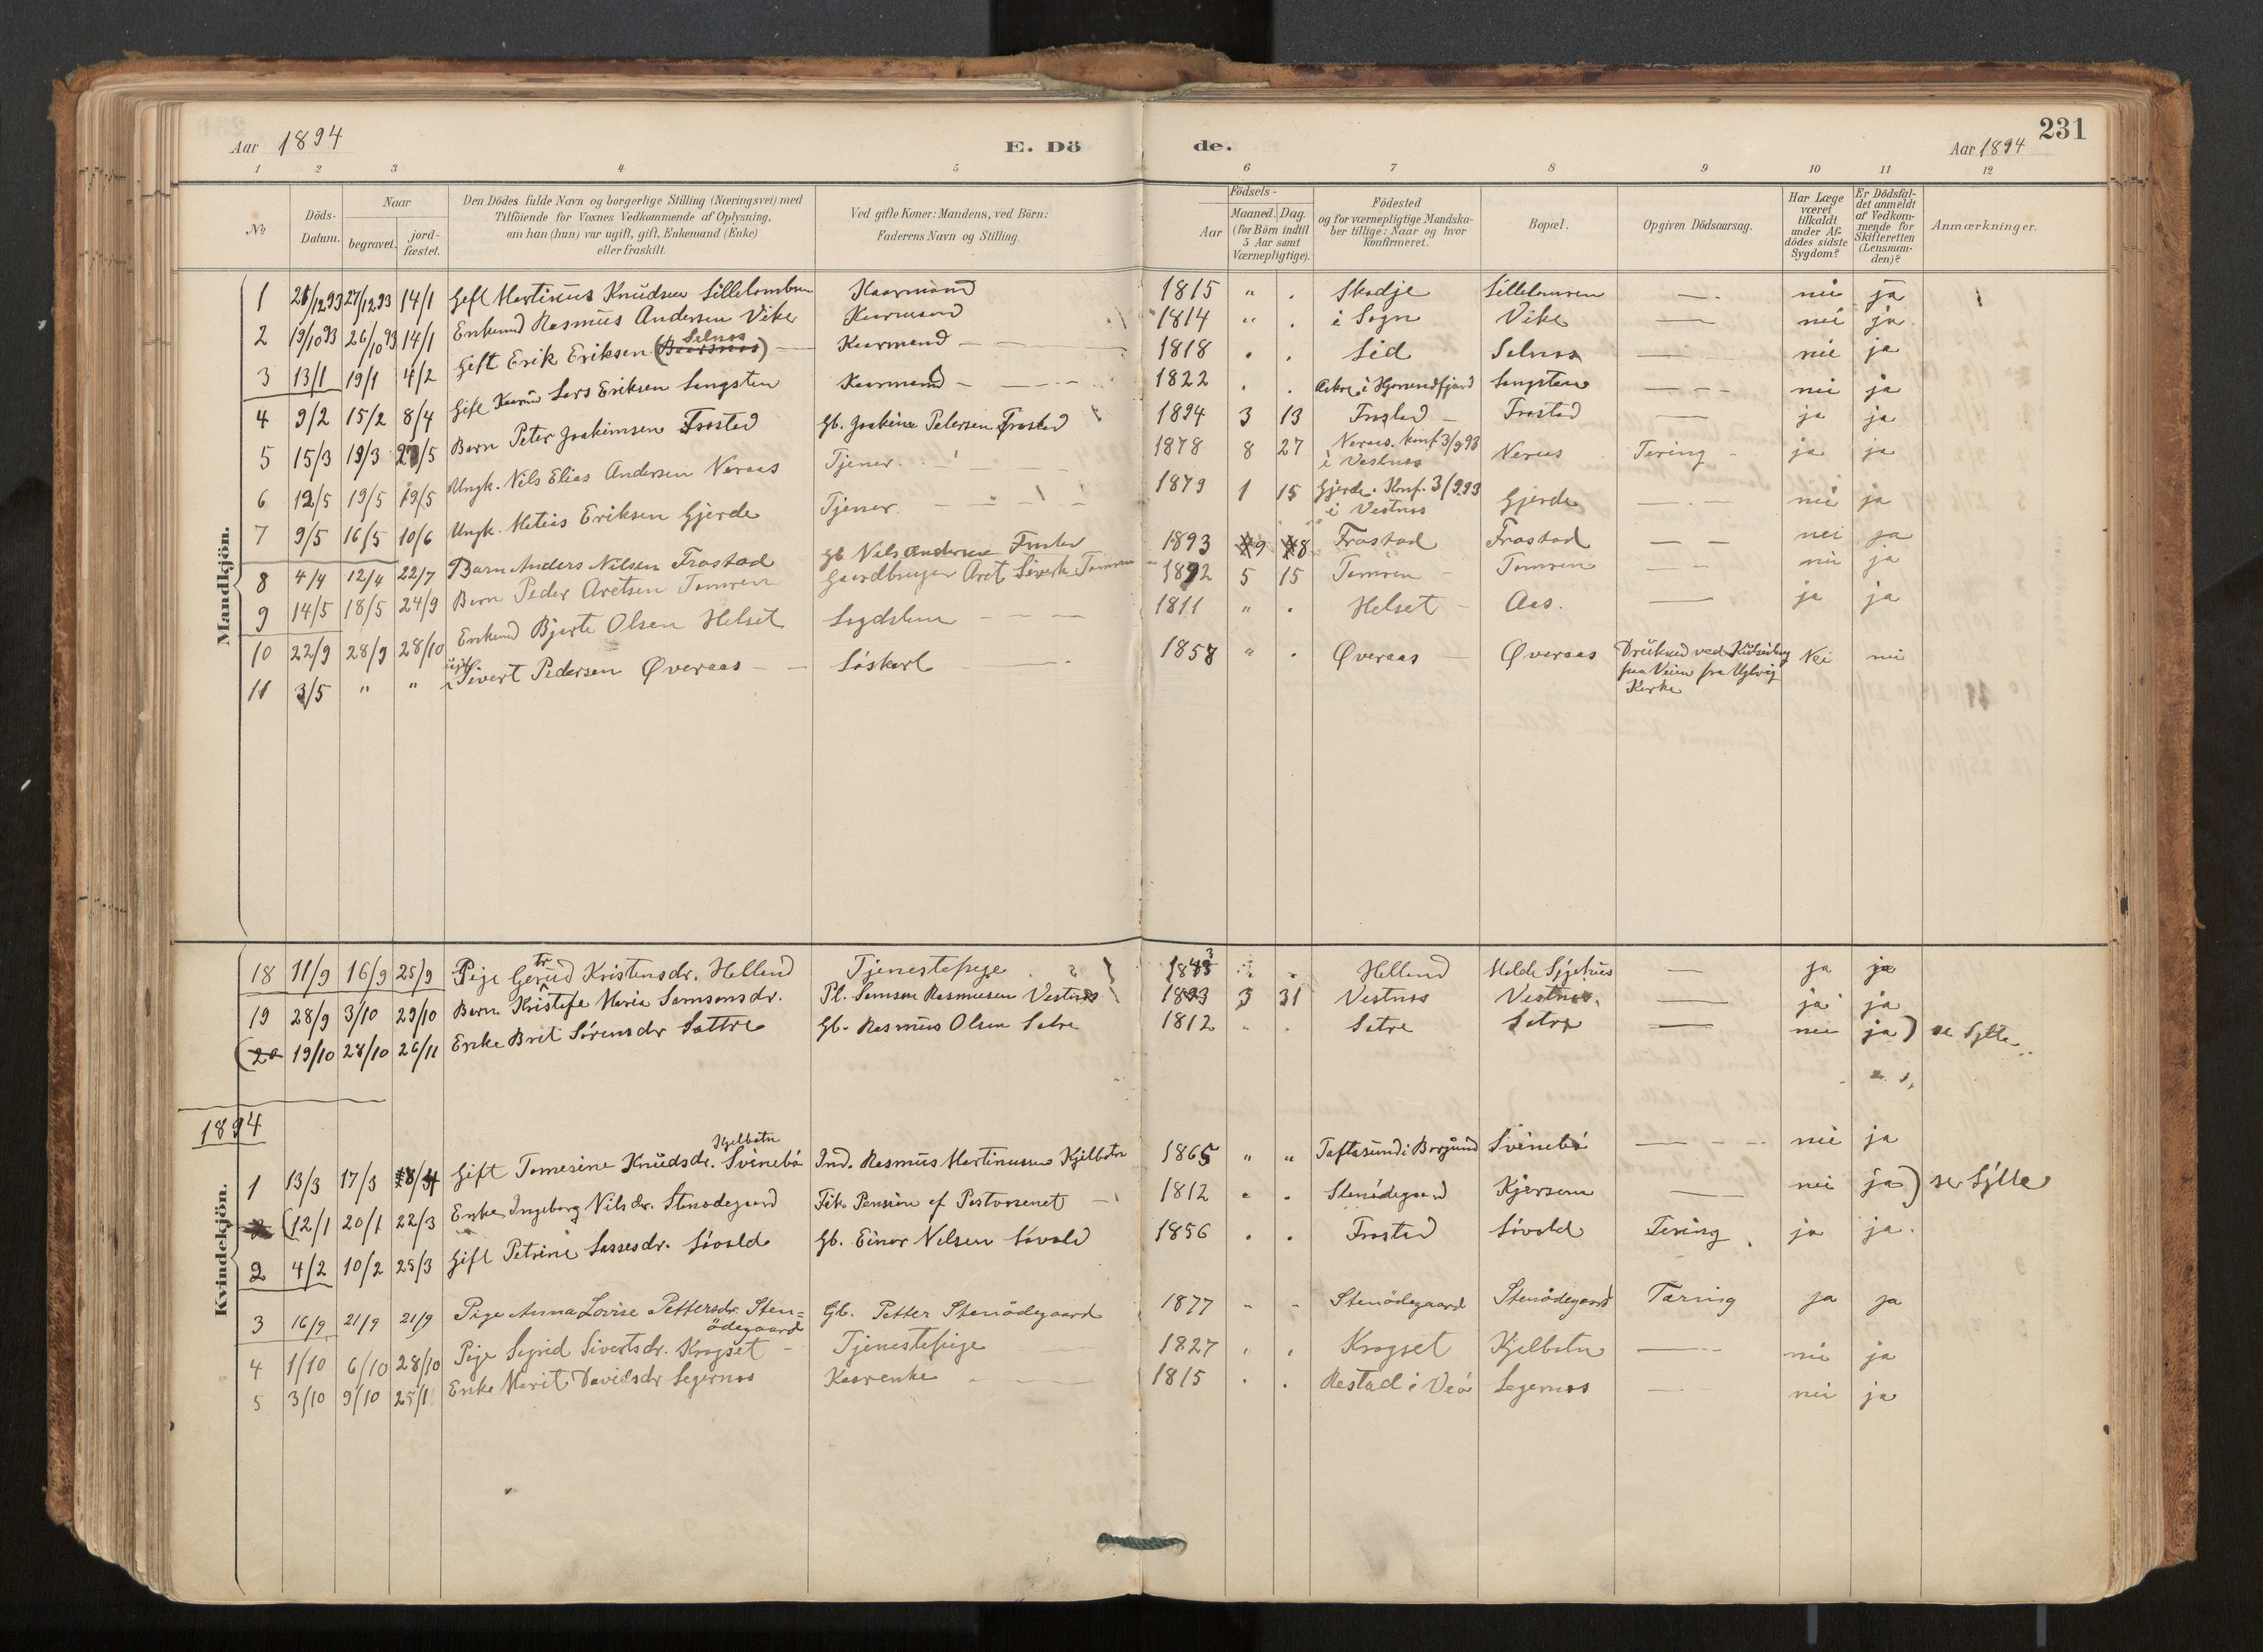 231
Aar 1894
E. Dö
de.
Aar 1894
1 2 3 4 5 6 7 8 9 10 11 12
№
Döds-Datum.
Naar
begravet.
jord-fæstet.
Den Dödes fulde Navn og borgerlige Stilling (Næringsvei) med
Tilföiende for Voxnes Vedkommende af Oplysning,
om han (hun) var ugift, gift, Enkemand (Enke)
eller fraskilt.
Ved gifte Koner: Mandens, ved Börn:
Faderens Navn og Stilling.
Födsels-
Aar
Maaned. Dag.
(for Börn indtil
5 Aar samt
Værnepligtige).
Födested
og for værnepligtige Mandska-
ber tillige: Naar og hvor
konfirmeret.
Bopæl.
Opgiven Dödsaarsag.
Har Læge
været
tilkaldt
under Af-
dödes sidste
Sygdom?
Er Dödsfal-
det anmeldt
af Vedkom-
mende for
Skifteretten
(Lensman-
den)?
Anmærkninger.
Mandkjön.
1 21/12 93 27/12 93 14/1 Gift Martinus Knudsen Lilletomren Kaarmand 1815 " . Skodje Lilletomren — nei ja
2 19/10 93 26/10 93 14/1 Enkemd Rasmus Andersen Vike Kaarmand 1814 " . i Sogn Vike — nei ja
Selnes
3 13/1 19/1 4/2 Gift Erik Eriksen Kaarmand — 1818 . . Lid Selnes — nei ja
4 9/2 15/2 8/4 Gift Lars Eriksen Langsten Kaarmand — 1822 . . i Hjørundfjord Langsten — nei ja
5 15/3 19/3 /5 Barn Peter Joakimsen Frostad Gb. Joakim Petersen Frostad 1894 3 13 Frostad Frostad — ja ja
6 12/5 19/5 19/5 Ungk. Nils Elias Andersen Neraas Tjener 1878 8 27 Neraas. konf 3/9 93
i Vestnes Neraas Tæring ja ja
7 9/5 16/5 10/6 Ungk. Mathias Eriksen Gjerde Tjener 1879 1 15 Gjerde. Konf. 3/9 93
i Vestnes Gjerde — nei ja
8 4/4 12/4 22/7 Barn Anders Nilsen Frostad Gb Nils Andersen Frostad 1893 9 8 Frostad Frostad — nei ja
9 14/5 18/5 24/9 Barn Peder Aretsen Tomren Gaardbruger Aret Sivertsen Tomren 1892 5 15 Tomren Tomren — nei ja
10 22/9 28/9 28/10 Enkemd Bjerte Olsen Helset Lægdslem 1811 " . Helset Aas. — ja ja
11 3/5 " " ugift Sivert Pedersen Øveraas Løskarl 1858 " . Øveraas Øveraas Druknet ved Kulseiling
paa Veien fra Uglvig
Kirke Nei nei
Kvindekjön.
18 11/9 16/9 25/9 Pige Gertrud Kristensdr. Helland Tjenestepige 1843 Helland Helde Sygehus — ja ja
19 28/9 3/10 29/10 Barn Kristofa Maria Samsonsdr. Pl. Samson Rasmussen Vestnes 1893 3 31 Vestnes Vestnes. — ja ja
(20 19/10 28/10 26/11 Enke Brit Sørensdr Sættre Gb. Rasmus Olsen Sætre 1812 . . Sætre Sætre — nei ja) se Sylte
1894
Kjelbotn
1 13/3 17/3 Gift Tomesine Knudsdr. Svinebø Ind. Rasmus Martinussen Kjelbotn 1865 " " Taftasund i Borgund Svinebø — nei ja
(12/1 20/1 22/3 Enke Ingeborg Nilsdr. Stenødegaard Fik Pension af Postvæsenet 1812 . . Stenødegaard Kjersem — nei ja) se Sylte
2 4/2 10/2 25/3 Gift Petrine Lassesdr. Løvold Gb. Einar Nilsen Løvold 1856 . . Frostad Løvold Tæring ja ja.
3 16/9 21/9 21/9 Pige Anna Lovise Pettersdr. Sten=
ødegaard Gb. Petter Stenødegaard 1877 - - Stenødegaard Stenødegaard Tæring ja ja
4 1/10 6/10 28/10 Pige Sigrid Sivertsdr. Krogset Tjenestepige 1827 . . Krogset Kjelbotn — nei ja
5 3/10 9/10 25/11 Enke Marit Davidsdr Legernes Kaarenke 1815 . . Restad i Veø Legernes — nei ja